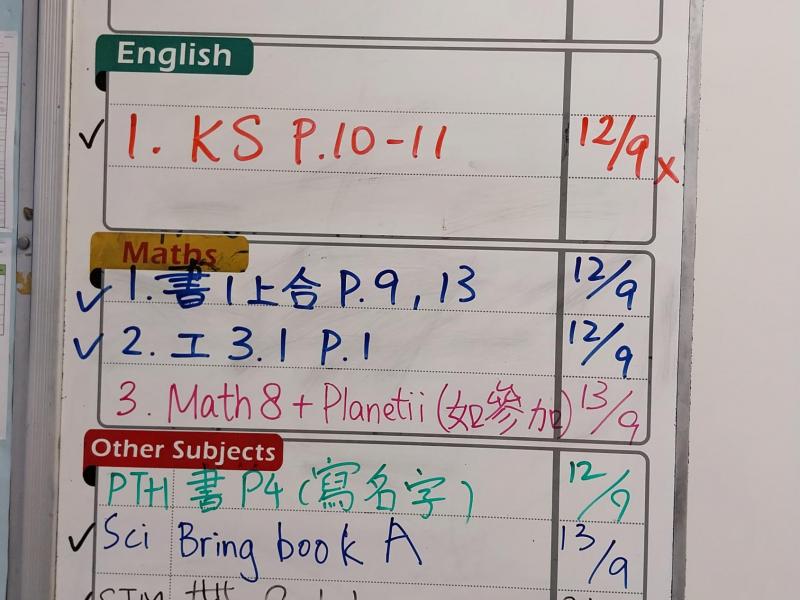 English
✓ 1. KS P.10-11 12/9 x
Maths
✓ 1. 書1上合 P.9, 13 12/9
✓ 2. 工 3.1 P.1 12/9
3. Math 8 + Planetii (如參加) 13/9
Other Subjects
PTH 書 P4 (寫名字) 12/9
✓ Sci Bring book A 13/9